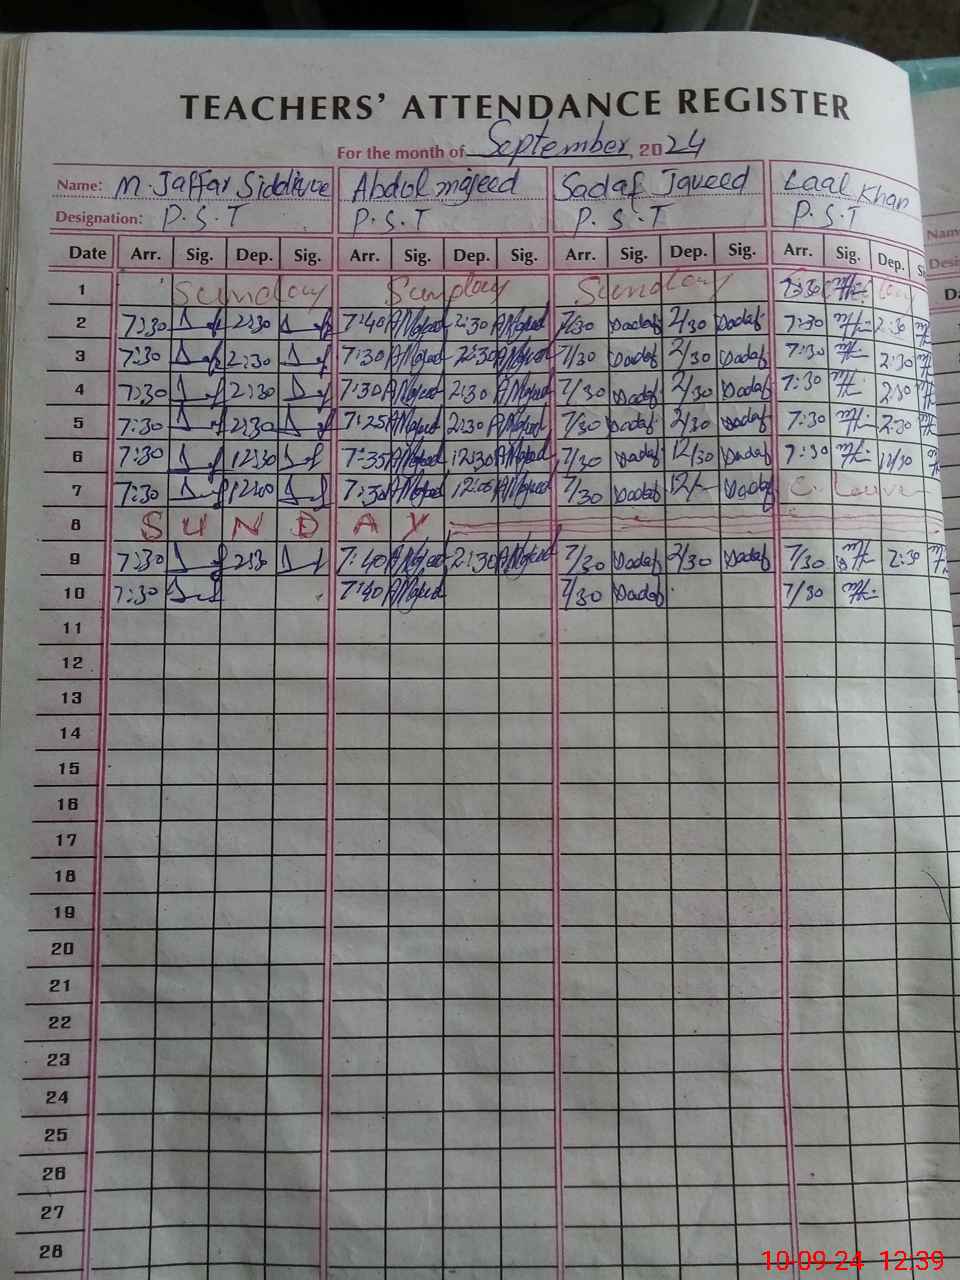 TEACHERS' ATTENDANCE REGISTER
For the month of September, 2024
Name: M. Jaffar Siddique Abdul majeed Sadaf Javeed Laal Khan Nam
Designation: P.S.T P.S.T P.S.T P.S.T Desi
Date Arr. Sig. Dep. Sig. Arr. Sig. Dep. Sig. Arr. Sig. Dep. Sig. Arr. Sig. Dep. Si Da
1 Sunday Sunday Sunday 7:30
2 7:30 2:30 7:40 AMajeed 2:30 AMajeed 7/30 Sadaf 2/30 Sadaf 7:30 2:30
3 7:30 2:30 7:30 AMajeed 2:30 AMajeed 7/30 Sadaf 2/30 Sadaf 7:30 2:30
4 7:30 2:30 7:30 AMajeed 2:30 AMajeed 7/30 Sadaf 2/30 Sadaf 7:30 2:30
5 7:30 2:30 7:25 AMajeed 2:30 AMajeed 7/30 Sadaf 2/30 Sadaf 7:30 2:30
6 7:30 12:30 7:35 AMajeed 12:30 AMajeed 7/30 Sadaf 12/30 Sadaf 7:30 12/30
7 7:30 12:00 7:30 AMajeed 7/30 Sadaf 12/- Sadaf C. Leave
8 SUNDAY
9 7:30 2:30 7:40 AMajeed 2:30 AMajeed 7/30 Sadaf 2/30 Sadaf 7/30 2:30
10 7:30 7:40 AMajeed 7/30 Sadaf 7/30
11
12
13
14
15
16
17
18
19
20
21
22
23
24
25
26
27
28
10-09-24 12:39